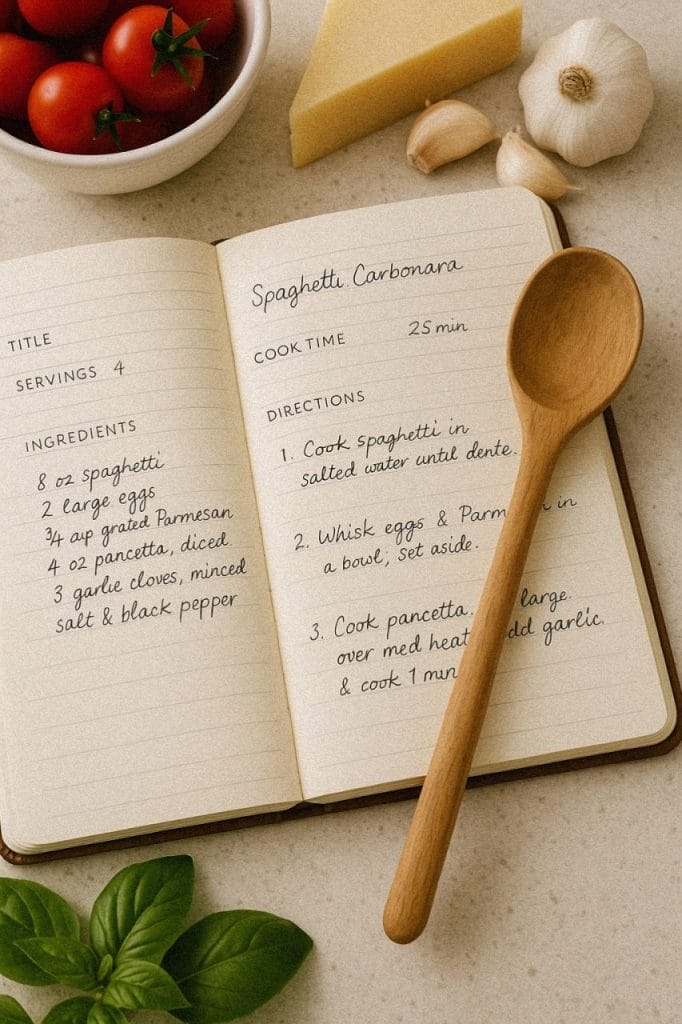 TITLE
SERVINGS 4
INGREDIENTS
8 oz spaghetti
2 large eggs
3/4 cup grated Parmesan
4 oz pancetta, diced
3 garlic cloves, minced
salt & black pepper
Spaghetti Carbonara
COOK TIME 25 min
DIRECTIONS
1. Cook spaghetti in
salted water until dente.
2. Whisk eggs & in
a bowl; set aside.
3. Cook pancetta. large.
over med heat garlic.
& cook 1 min